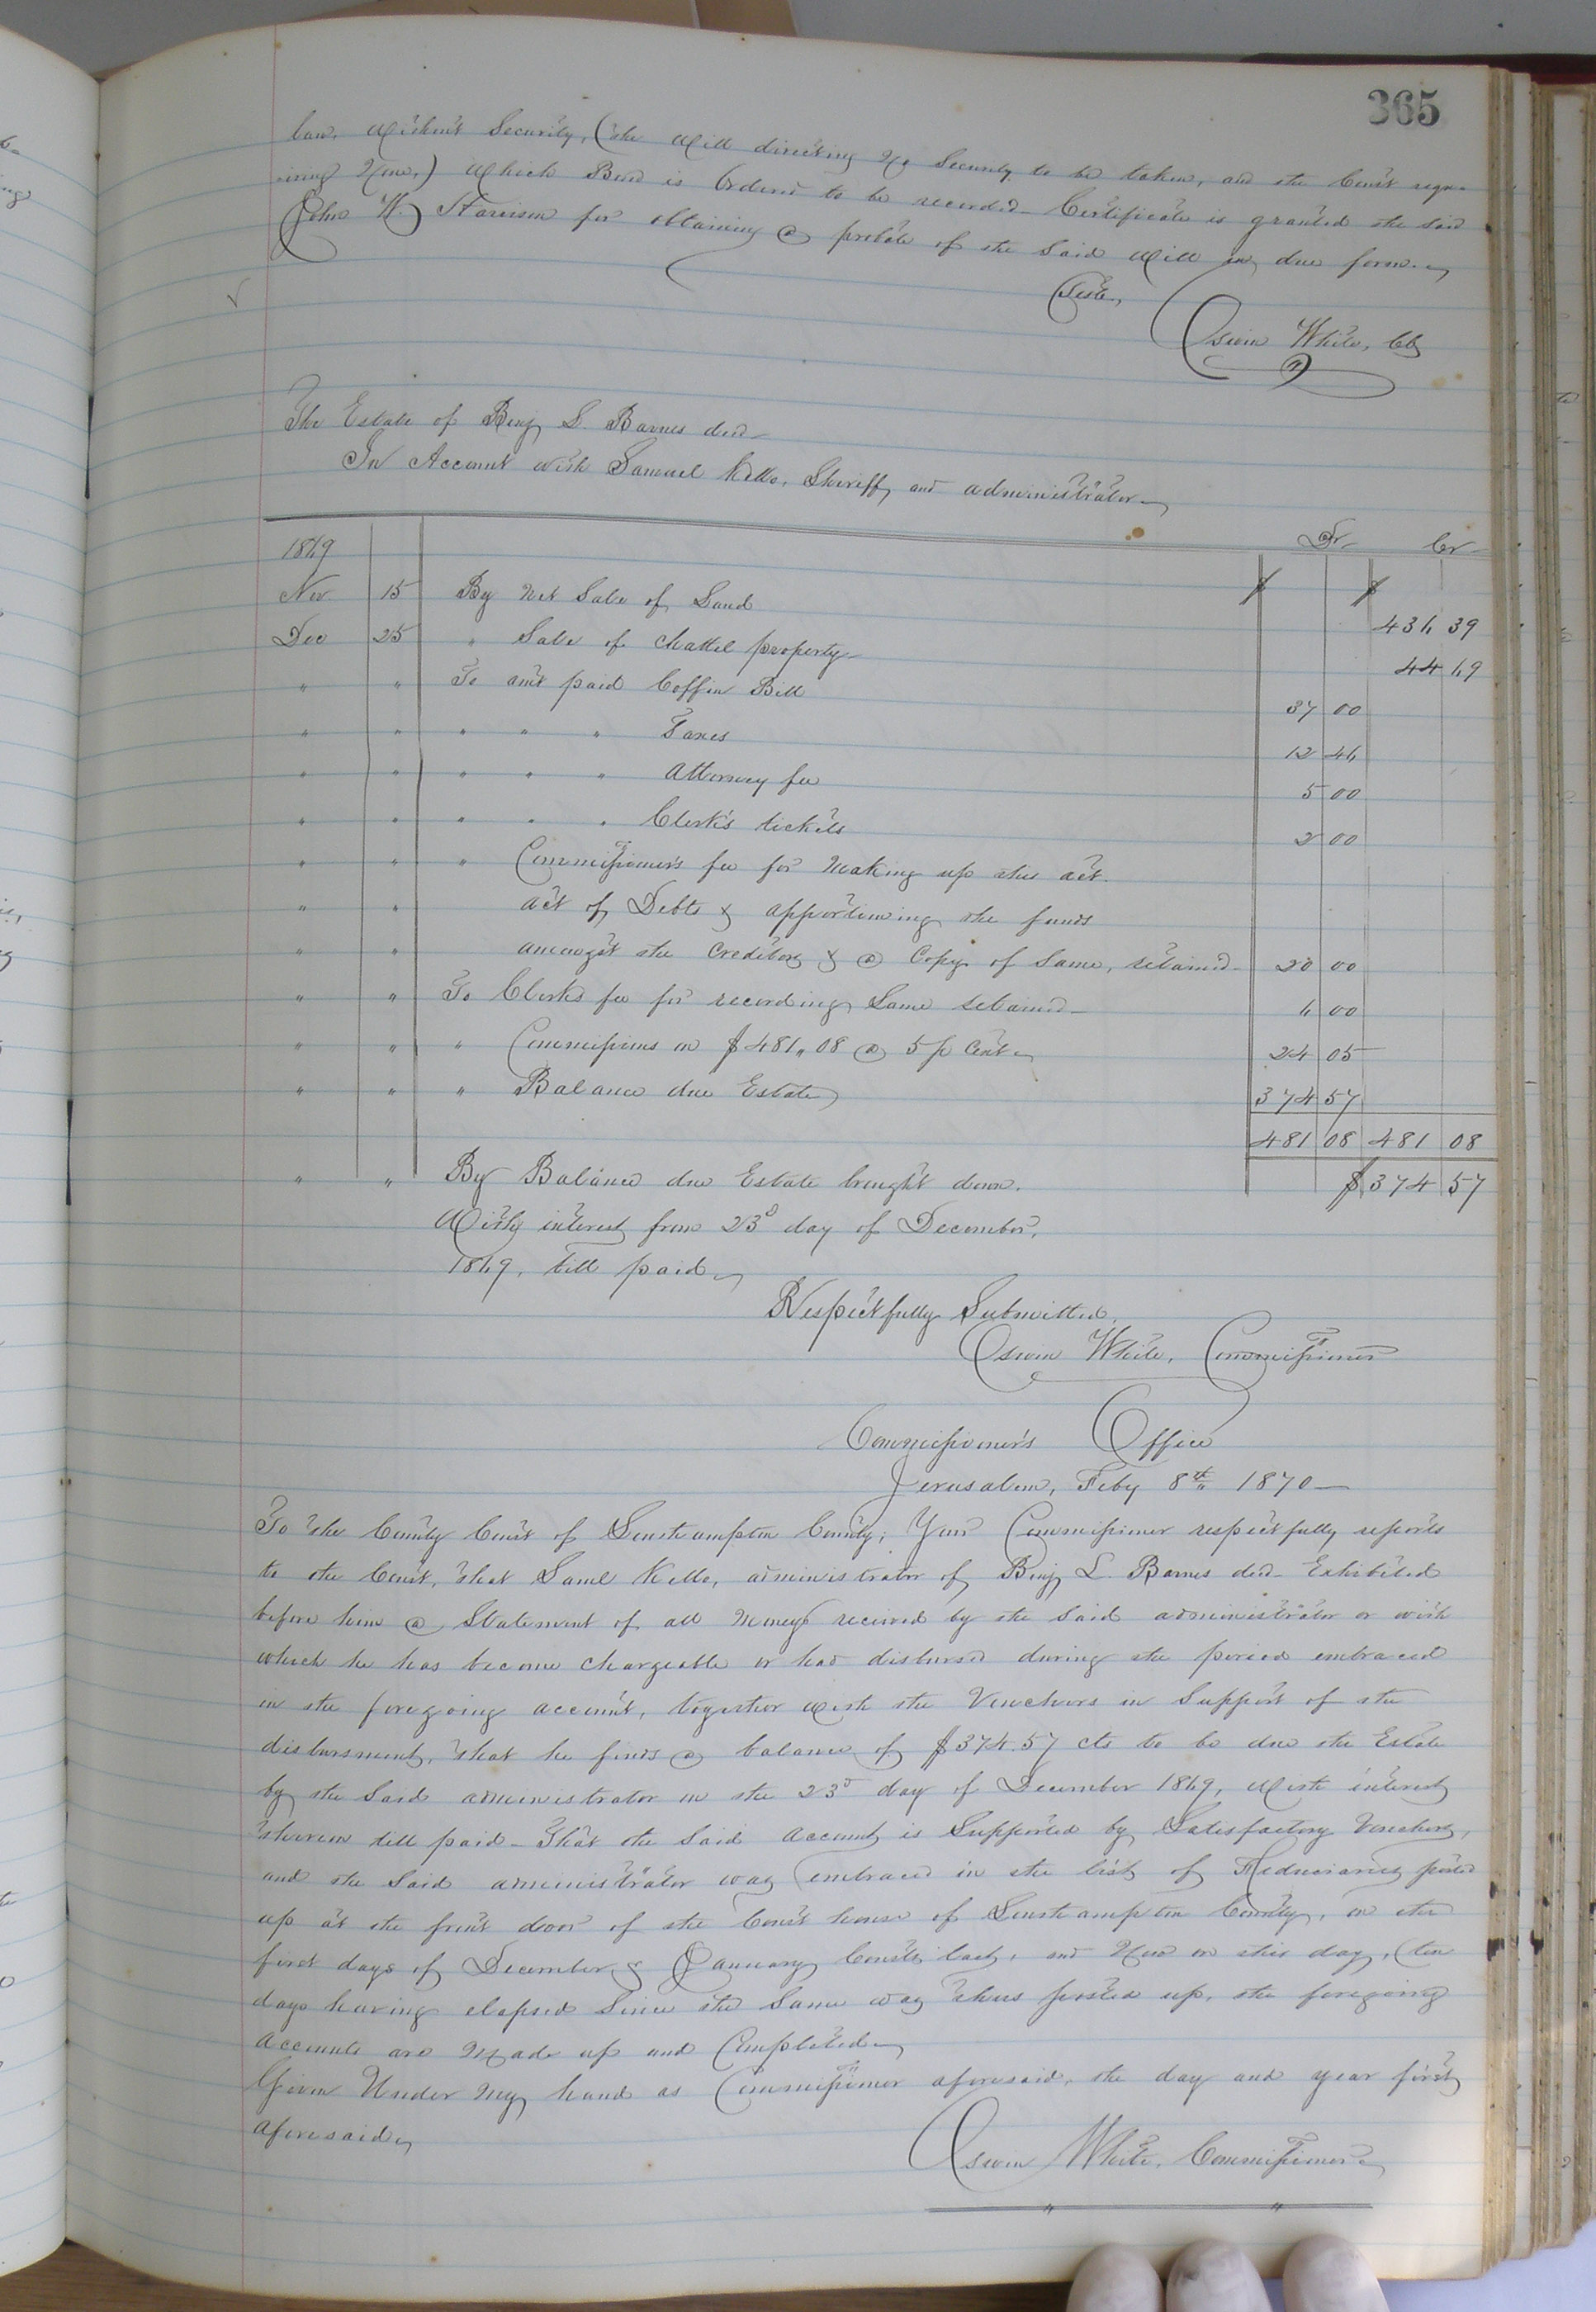 365
law, without Security, (the Will directing no Security to be taken, and the Court requ-
-iring None,) Which Bond is Ordered to be recorded - Certificate is granted the said
John W. Harrison for obtaining a probate of the Said Will in due form.
Teste,
Oswin White, Clk
The Estate of Benj. L. Barnes decd
In Account with Samuel Kello, Sheriff, and administrator
1869 Dr Cr
Nov 15 By Net Sale of Land $ $ 436 39
Dec 25 " Sale of Chattel property 44 69
" " To amt paid Coffin Bill 37 00
" " " " " Taxes 12 46
" " " " " Attorney fee 5 00
" " " " " Clerk's tickets 2 00
" " " Commissioner's fee for Making up this act.
" " act of Debts & apportioning the funds
" " amongst the Creditors & a Copy of Same, retained 20 00
" " To Clerks fee for recording Same retained 6 00
" " " Commissions on $481,,08 @ 5 p Cent 24 05
" " " Balance due Estate 374 57
481 08 481 08
" " By Balance due Estate brought down. $374 57
With interest from 23d day of December,
1869, till paid
Respectfully Submitted,
Oswin White, Commissioner
Commissioner's Office
Jerusalem, Feby 8th 1870
To the County Court of Southampton County; Your Commissioner respectfully reports
to the Court, that Saml Kello, administrator of Benj L. Barnes decd Exhibited
before him a Statement of all Moneys received by the Said administrator or with
which he has become Chargeable or had disbursd during the period embraced
in the foregoing account, together with the Vouchers in Support of the
disbursment, that he finds a balance of $374.57 cts to be due the Estate
by the Said administrator on the 23d day of December 1869, with interest
thereon till paid - That the Said Account is Supported by Satisfactory Vouchers,
and the Said administrator was embraced in the list of Fiduciaries posted
up at the front door of the Court house of Southampton County, on the
first days of December & January Courts last, and Now on this day, (ten
days having elapsed Since the Same was thus posted up, the foregoing
accounts are Made up and Completed
Given Under My hand as Commissioner aforesaid, the day and year first
aforesaid,
Oswin White, Commissioner